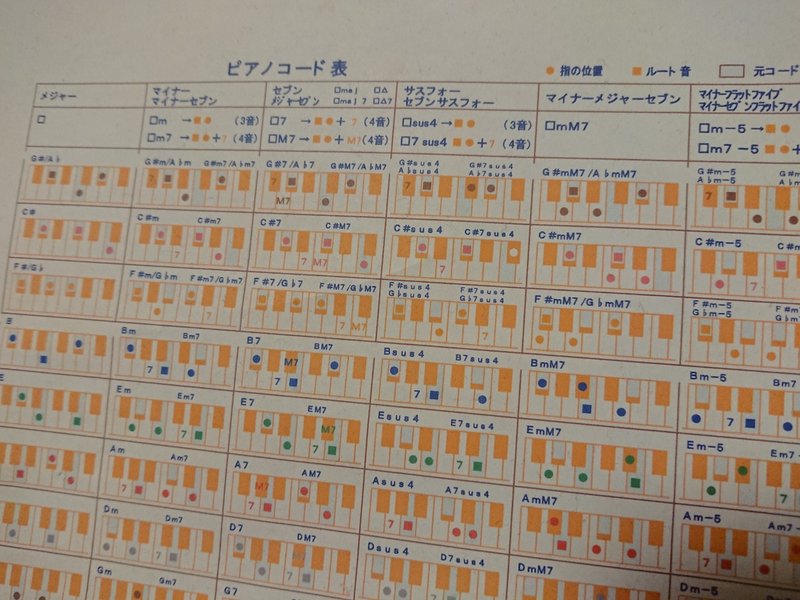 ピアノコード表
● 指の位置 ■ ルート音 □ 元コード
メジャー
マイナー
マイナーセブン
セブン □maj □△
メジャーセブン □maj7 □△7
サスフォー
セブンサスフォー
マイナーメジャーセブン
マイナーフラットファイブ
マイナーセブンフラットファイ
□
□m →■● (3音)
□m7 →■●+7 (4音)
□7 →■●+7 (4音)
□M7 →■●+7 (4音)
□sus4 →■● (3音)
□7sus4 →■●+7 (4音)
□mM7
□m-5 →■●
□m7-5 ■●+
G#/A♭
G#m/A♭m G#m7/A♭m7
G#7/A♭7 G#M7/A♭M7
G#sus4 G#7sus4
A♭sus4 A♭7sus4
G#mM7/A♭mM7
G#m-5
A♭m-5
7
M7
C#
C#m C#m7
C#7 C#M7
C#sus4 C#7sus4
C#mM7
C#m-5 C#m
7
7 M7
7
7
F#/G♭
F#m/G♭m F#m7/G♭m7
F#7/G♭7 F#M7/G♭M7
F#sus4 F#7sus4
G♭sus4 G♭7sus4
F#mM7/G♭mM7
F#m-5
G♭m-5
7
7 M7
7
B
Bm Bm7
B7 BM7
Bsus4 B7sus4
BmM7
Bm-5 Bm7
7
M7
7
7
7
E
Em Em7
E7 EM7
Esus4 E7sus4
EmM7
Em-5 Em7
7
M7
7
7
7
Am Am7
A7 AM7
Asus4 A7sus4
AmM7
Am-5 Am7
7
M7
7
7
7
Dm Dm7
D7 DM7
Dsus4 D7sus4
DmM7
Dm-5
7
M7
7
Gm Gm7
G7